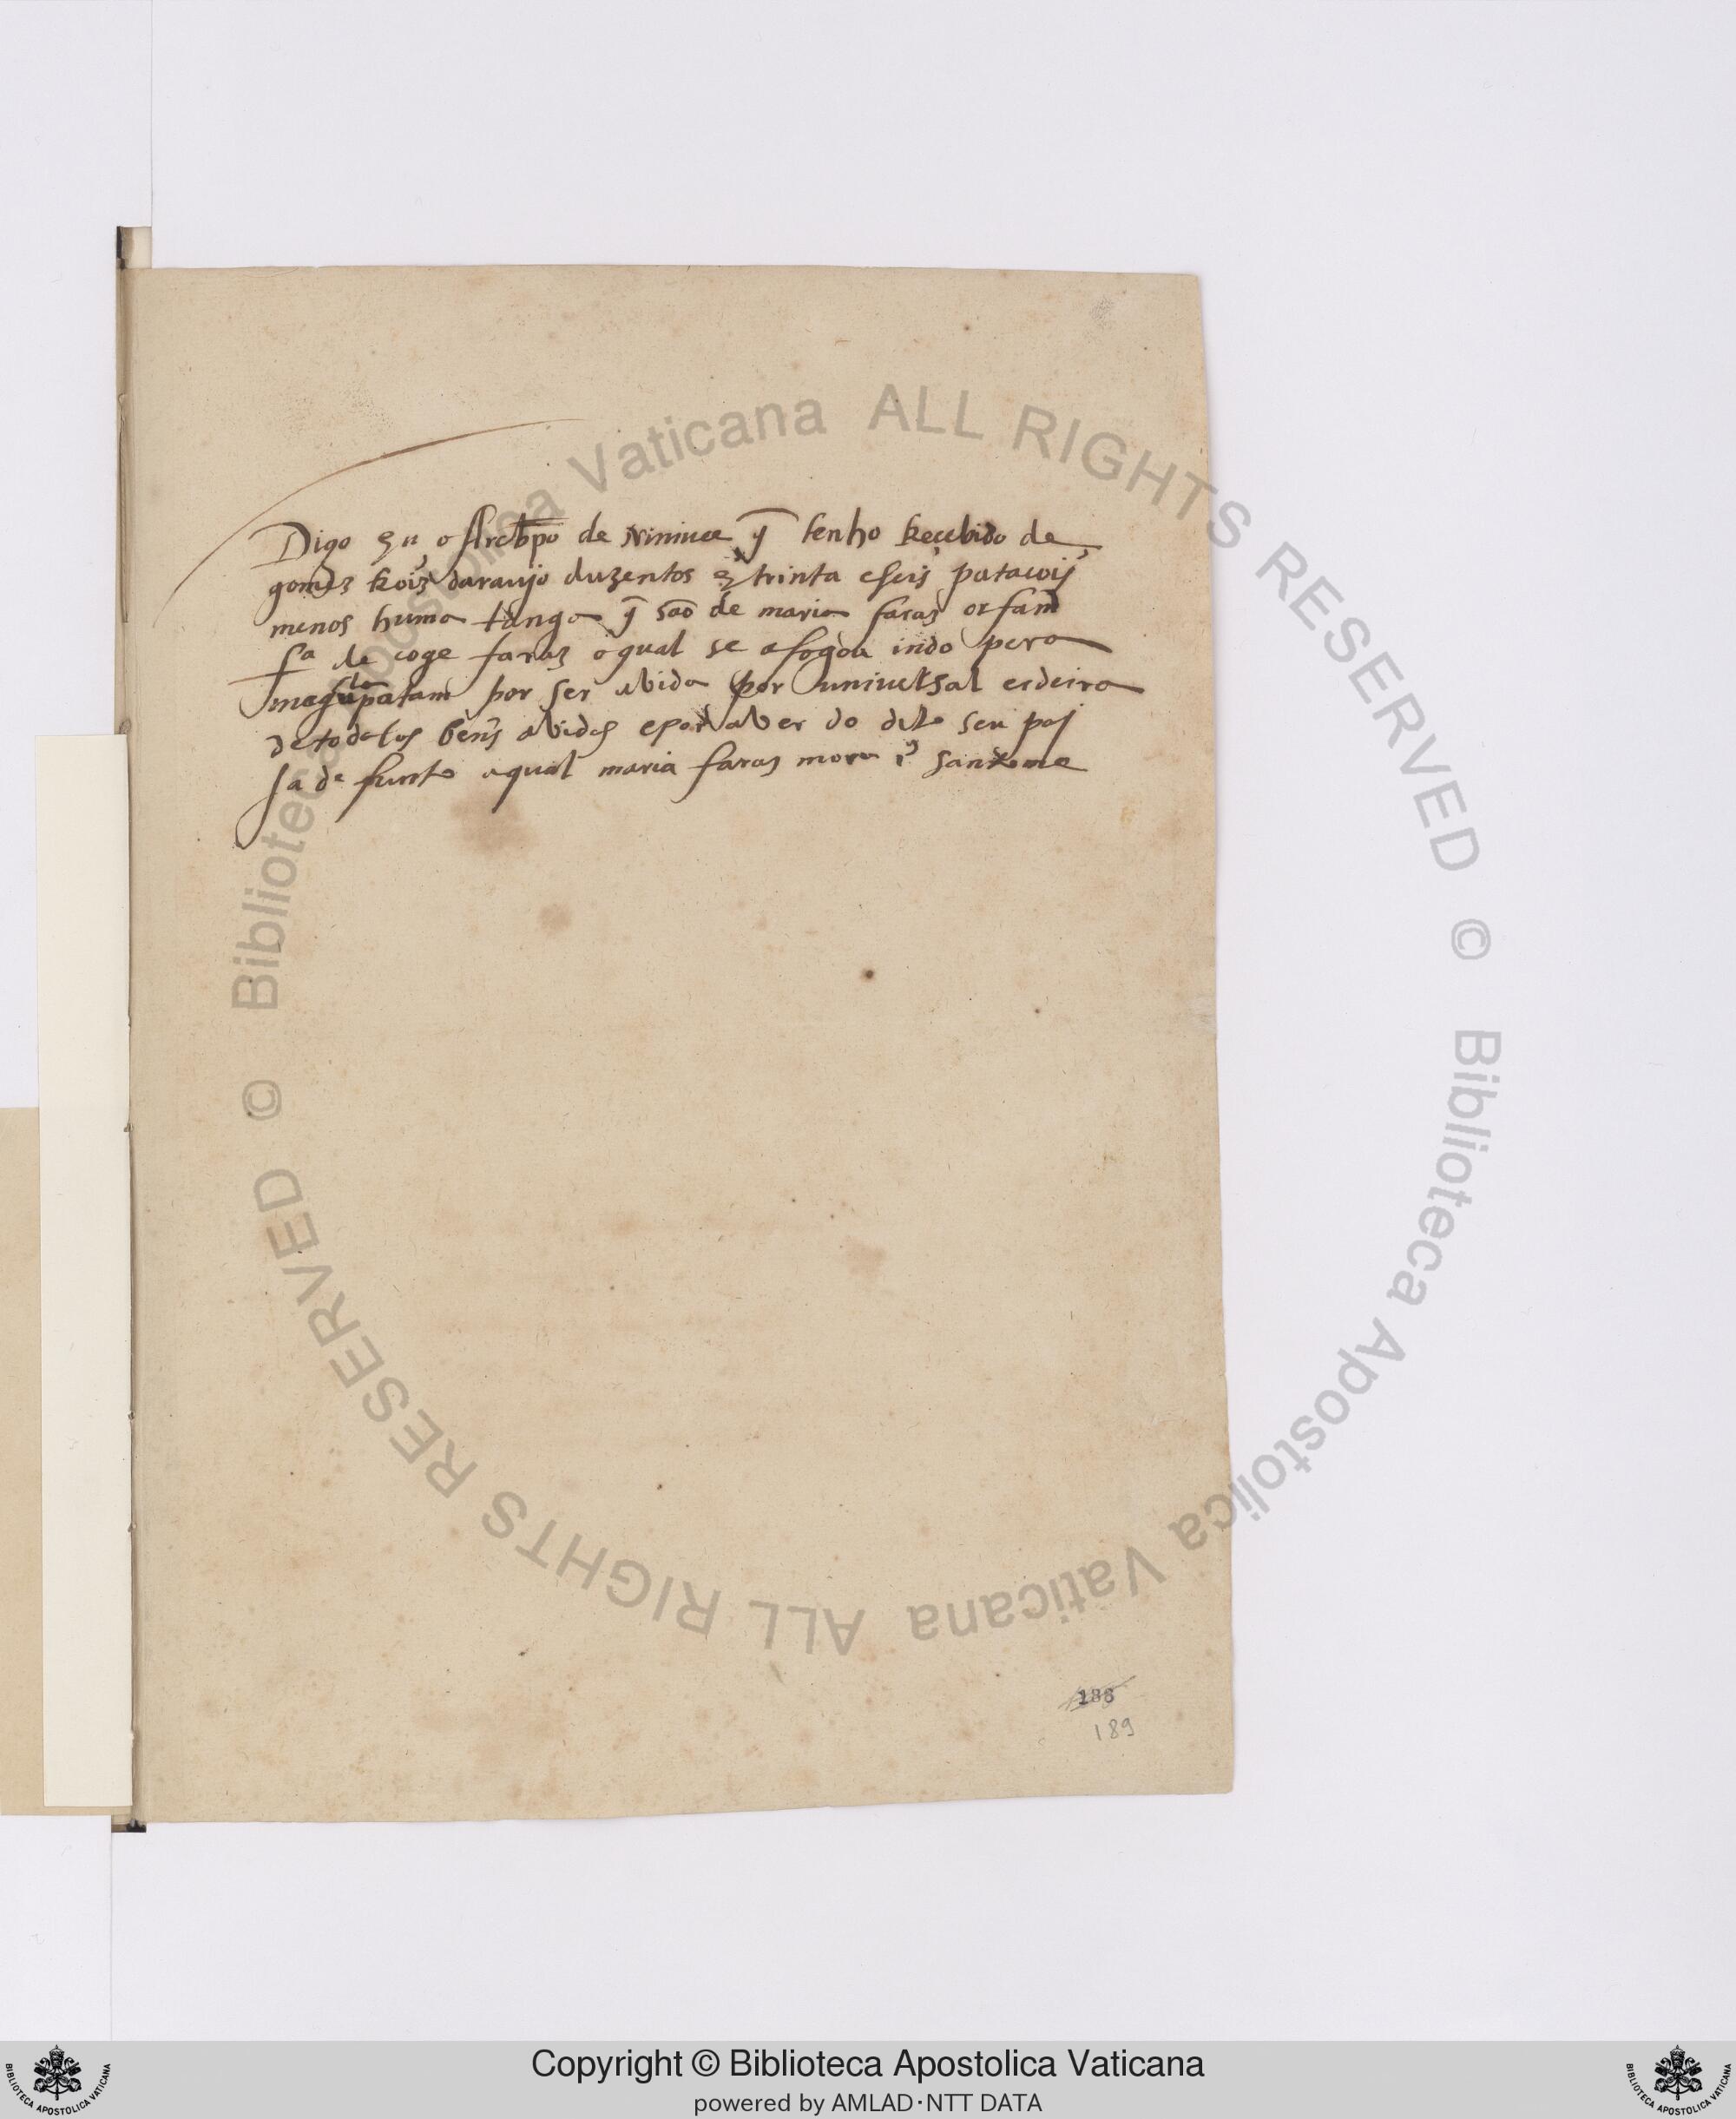 Digo eu o Arcbpo de Niniue q̃ tenho Reçebido de
gomez Roiz daraujo duzentos e trinta e seis patacois
menos huma tanga q̃ são de maria faras orfam
fa de coge faraz o qual se afogou indo pera
masulapatam por ser avida por universal erdeira
de todolos bens avidos e por aver do dito seu pai
ja defunto a qual maria faras mora ẽ santome
188
189
© Biblioteca Apostolica Vaticana ALL RIGHTS RESERVED
© Biblioteca Apostolica Vaticana ALL RIGHTS RESERVED
Copyright © Biblioteca Apostolica Vaticana
powered by AMLAD･NTT DATA
BIBLIOTECA APOSTOLICA VATICANA
BIBLIOTECA APOSTOLICA VATICANA